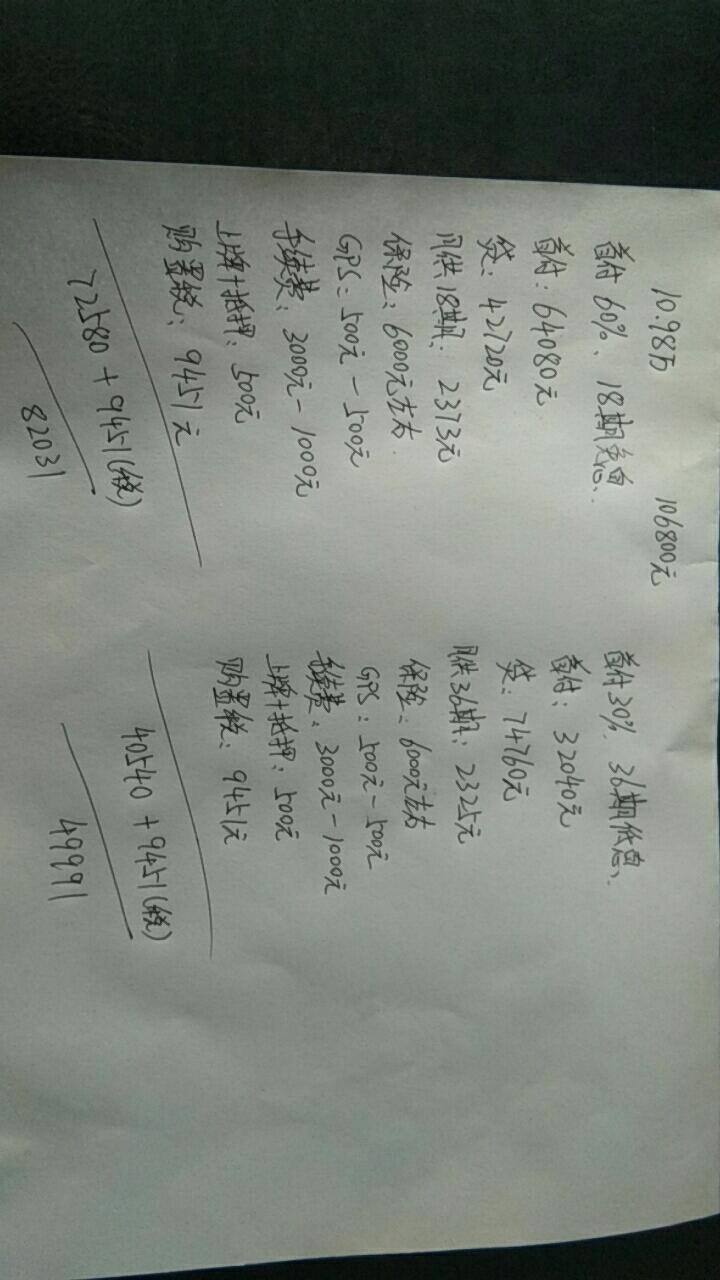 10.98万
106800元
首付 60%、18期免息、
首付：64080元
贷：42720元
月供18期：2373元
保险：6000元左右
GPS：500元－500元
手续费：3000元－1000元
上牌+抵押：500元
购置税：9451元
72580 + 9451(税)
82031
首付30%. 36期低息、
首付：32040元
贷：74760元
月供36期：2325元
保险：6000元左右
GPS：500元－500元
手续费：3000元－1000元
上牌+抵押：500元
购置税：9451元
40540 + 9451(税)
49991